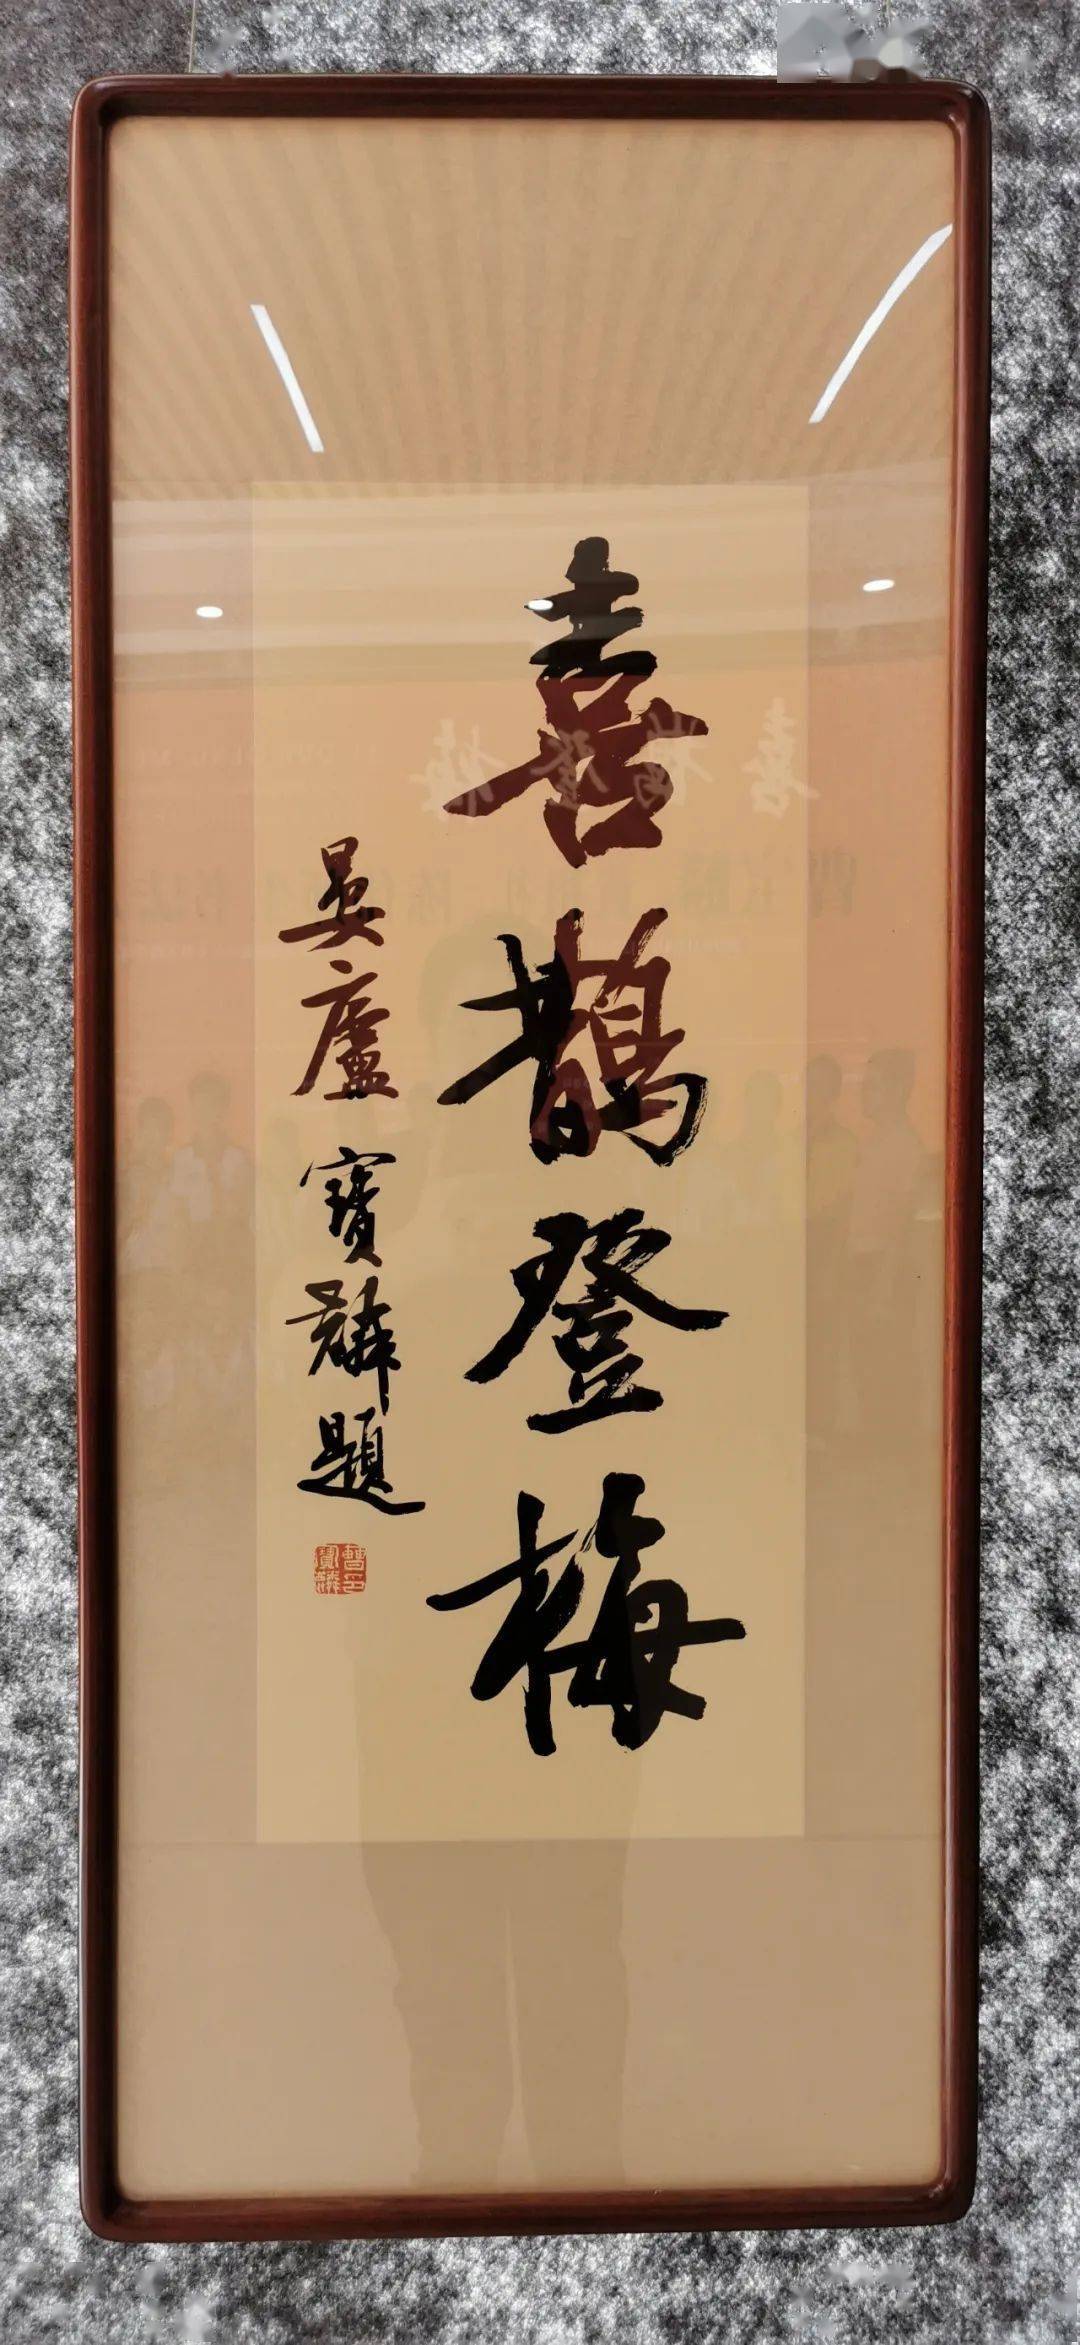 喜鵲登梅
晏廬寶麟題
曹寶麟印